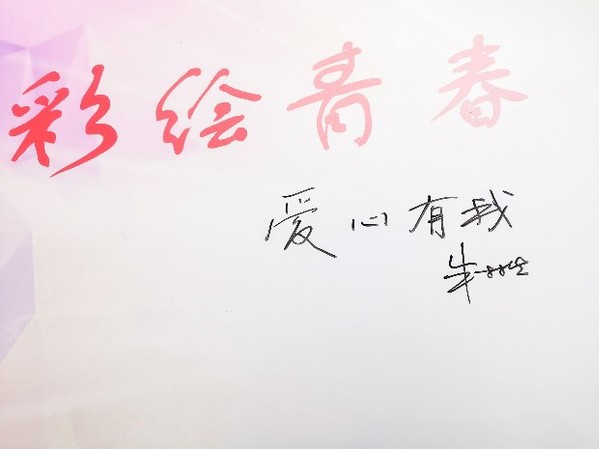 彩绘青春
爱心有我